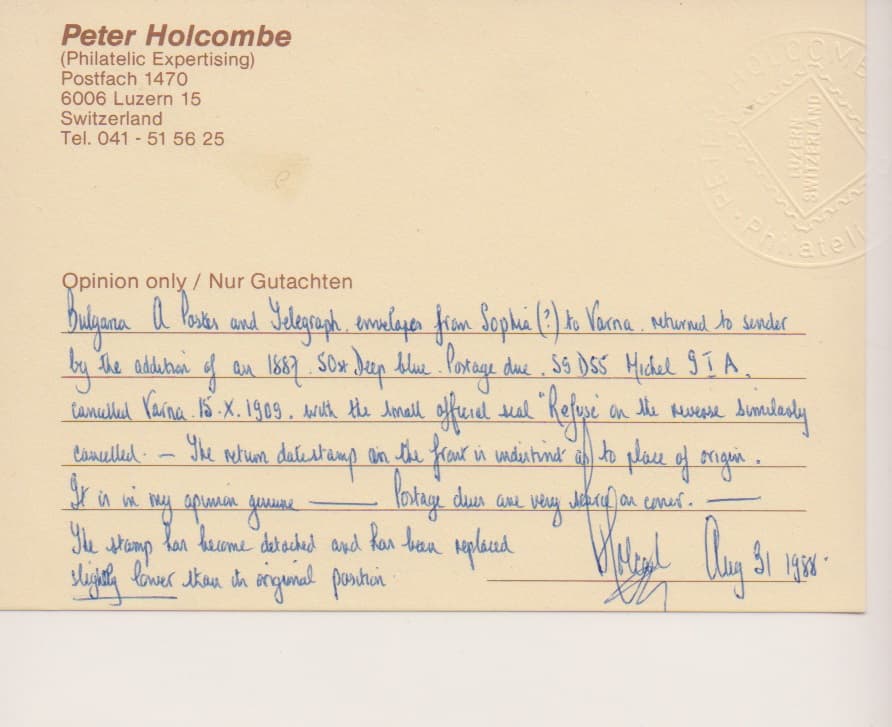 Peter Holcombe
(Philatelic Expertising)
Postfach 1470
6006 Luzern 15
Switzerland
Tel. 041 - 51 56 25
PETER HOLCOMBE
LUZERN
SWITZERLAND
Philateli
Opinion only / Nur Gutachten
Bulgaria A Postes and Telegraph envelopes from Sophia (?) to Varna returned to sender
by the addition of an 1887 50st Deep blue Postage due. SG D55 Michel 9 I A.
cancelled Varna 15.X.1909. with the small official seal "Refusé" on the reverse similarly
cancelled. — The return datestamp on the front is indistinct as to place of origin.
It is in my opinion genuine — Postage dues are very scarce on cover. —
The stamp has become detached and has been replaced
slightly lower than its original position
Holcombe Aug 31 1988.